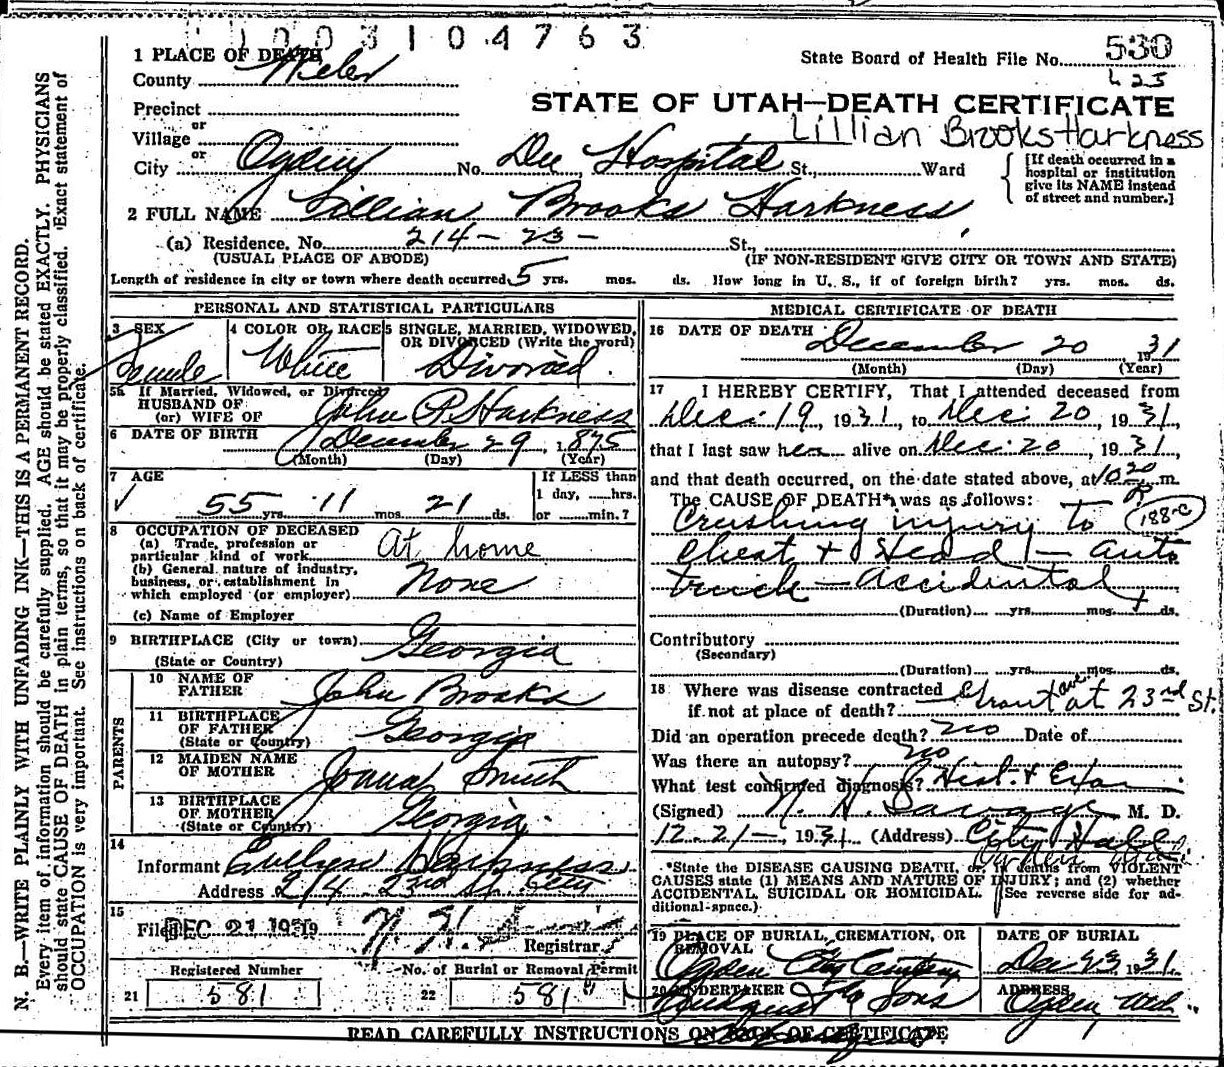 1003104763
1 PLACE OF DEATH
County Weber
State Board of Health File No. 530
423
Precinct
or
Village
STATE OF UTAH—DEATH CERTIFICATE
Lillian Brooks Harkness
or
City Ogden No. Dee Hospital St., Ward
[If death occurred in a hospital or institution give its NAME instead of street and number.]
2 FULL NAME Lillian Brooks Harkness
(a) Residence, No. 214 - 23 - St.,
(USUAL PLACE OF ABODE) (IF NON-RESIDENT GIVE CITY OR TOWN AND STATE)
Length of residence in city or town where death occurred 5 yrs. mos. ds. How long in U. S., if of foreign birth? yrs. mos. ds.
PERSONAL AND STATISTICAL PARTICULARS
3 SEX
Female
4 COLOR OR RACE
White
5 SINGLE, MARRIED, WIDOWED, OR DIVORCED (Write the word)
Divorced.
5a If Married, Widowed, or Divorced
HUSBAND OF
(or) WIFE OF John P. Harkness
6 DATE OF BIRTH December 29, 1875
(Month) (Day) (Year)
7 AGE
55 yrs. 11 mos. 21 ds.
If LESS than
1 day, hrs.
or min.?
8 OCCUPATION OF DECEASED
(a) Trade, profession or
particular kind of work At home
(b) General nature of industry,
business, or establishment in
which employed (or employer) None
(c) Name of Employer
9 BIRTHPLACE (City or town) Georgia
(State or Country)
PARENTS
10 NAME OF
FATHER John Brooks
11 BIRTHPLACE
OF FATHER Georgia
(State or Country)
12 MAIDEN NAME
OF MOTHER Smith
13 BIRTHPLACE
OF MOTHER Georgia.
(State or Country)
14
Informant Harkness
Address 214 23rd St. City
15
Filed DEC 21 1931 19 N. H.
Registrar
Registered Number
21 581
No. of Burial or Removal Permit
22 581
MEDICAL CERTIFICATE OF DEATH
16 DATE OF DEATH December 20 1931
(Month) (Day) (Year)
17 I HEREBY CERTIFY, That I attended deceased from
Dec. 19, 1931, to Dec. 20, 1931,
that I last saw her alive on Dec. 20, 1931,
and that death occurred, on the date stated above, at 10 20 P. m.
The CAUSE OF DEATH* was as follows:
Crushing injury to 188-c
Chest + Head - auto
truck - accidental
(Duration) yrs. mos. ds.
Contributory
(Secondary)
(Duration) yrs. mos. ds.
18 Where was disease contracted
if not at place of death? Grant ave at 23rd St.
Did an operation precede death? no Date of
Was there an autopsy? no
What test confirmed diagnosis? Hist. + Exam
(Signed) N. H. Savage M. D.
12-21-, 1931 (Address) City Hall
*State the DISEASE CAUSING DEATH, or, in deaths from VIOLENT
CAUSES state (1) MEANS AND NATURE OF INJURY; and (2) whether
ACCIDENTAL, SUICIDAL OR HOMICIDAL. (See reverse side for additional space.)
19 PLACE OF BURIAL, CREMATION, OR
REMOVAL
Ogden City Cemetery
DATE OF BURIAL
Dec 23, 1931.
20 UNDERTAKER
Lindquist & Sons
ADDRESS
Ogden, Utah
READ CAREFULLY INSTRUCTIONS ON BACK OF CERTIFICATE
N. B.—WRITE PLAINLY WITH UNFADING INK—THIS IS A PERMANENT RECORD.
Every item of information should be carefully supplied. AGE should be stated EXACTLY. PHYSICIANS
should state CAUSE OF DEATH in plain terms, so that it may be properly classified. Exact statement of
OCCUPATION is very important. See instructions on back of certificate.